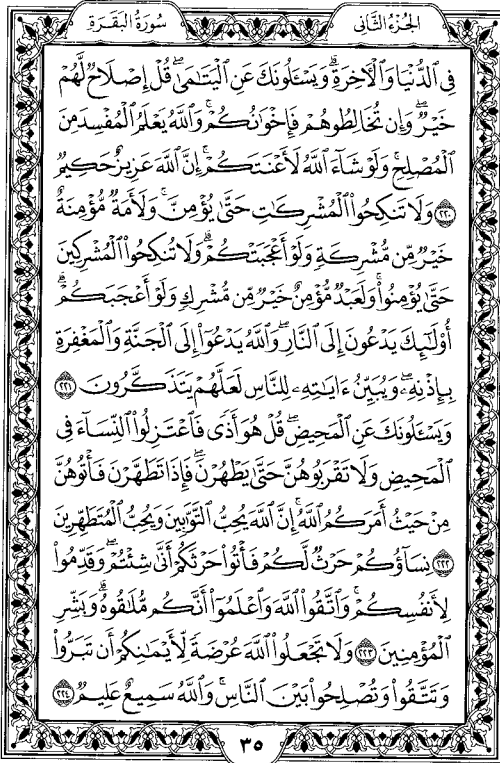 سُورَةُ البَقَرَةِ
الجُزءُ الثَّانِي
فِي ٱلدُّنْيَا وَٱلْأَخِرَةِ ۗ وَيَسْـَٔلُونَكَ عَنِ ٱلْيَتَـٰمَىٰ ۖ قُلْ إِصْلَاحٌ لَّهُمْ
خَيْرٌ ۖ وَإِن تُخَالِطُوهُمْ فَإِخْوَٰنُكُمْ ۚ وَٱللَّهُ يَعْلَمُ ٱلْمُفْسِدَ مِنَ
ٱلْمُصْلِحِ ۚ وَلَوْ شَآءَ ٱللَّهُ لَأَعْنَتَكُمْ ۚ إِنَّ ٱللَّهَ عَزِيزٌ حَكِيمٌ
٢٢٠ وَلَا تَنكِحُوا۟ ٱلْمُشْرِكَـٰتِ حَتَّىٰ يُؤْمِنَّ ۚ وَلَأَمَةٌ مُّؤْمِنَةٌ
خَيْرٌ مِّن مُّشْرِكَةٍ وَلَوْ أَعْجَبَتْكُمْ ۗ وَلَا تُنكِحُوا۟ ٱلْمُشْرِكِينَ
حَتَّىٰ يُؤْمِنُوا۟ ۚ وَلَعَبْدٌ مُّؤْمِنٌ خَيْرٌ مِّن مُّشْرِكٍ وَلَوْ أَعْجَبَكُمْ ۗ
أُو۟لَـٰٓئِكَ يَدْعُونَ إِلَى ٱلنَّارِ ۖ وَٱللَّهُ يَدْعُوٓا۟ إِلَى ٱلْجَنَّةِ وَٱلْمَغْفِرَةِ
بِإِذْنِهِۦ ۖ وَيُبَيِّنُ ءَايَـٰتِهِۦ لِلنَّاسِ لَعَلَّهُمْ يَتَذَكَّرُونَ ٢٢١
وَيَسْـَٔلُونَكَ عَنِ ٱلْمَحِيضِ ۖ قُلْ هُوَ أَذًى فَٱعْتَزِلُوا۟ ٱلنِّسَآءَ فِي
ٱلْمَحِيضِ وَلَا تَقْرَبُوهُنَّ حَتَّىٰ يَطْهُرْنَ ۖ فَإِذَا تَطَهَّرْنَ فَأْتُوهُنَّ
مِنْ حَيْثُ أَمَرَكُمُ ٱللَّهُ ۚ إِنَّ ٱللَّهَ يُحِبُّ ٱلتَّوَّٰبِينَ وَيُحِبُّ ٱلْمُتَطَهِّرِينَ
٢٢٢ نِسَآؤُكُمْ حَرْثٌ لَّكُمْ فَأْتُوا۟ حَرْثَكُمْ أَنَّىٰ شِئْتُمْ ۖ وَقَدِّمُوا۟
لِأَنفُسِكُمْ ۚ وَٱتَّقُوا۟ ٱللَّهَ وَٱعْلَمُوٓا۟ أَنَّكُم مُّلَـٰقُوهُ ۗ وَبَشِّرِ
ٱلْمُؤْمِنِينَ ٢٢٣ وَلَا تَجْعَلُوا۟ ٱللَّهَ عُرْضَةً لِّأَيْمَـٰنِكُمْ أَن تَبَرُّوا۟
وَتَتَّقُوا۟ وَتُصْلِحُوا۟ بَيْنَ ٱلنَّاسِ ۗ وَٱللَّهُ سَمِيعٌ عَلِيمٌ ٢٢٤
٣٥